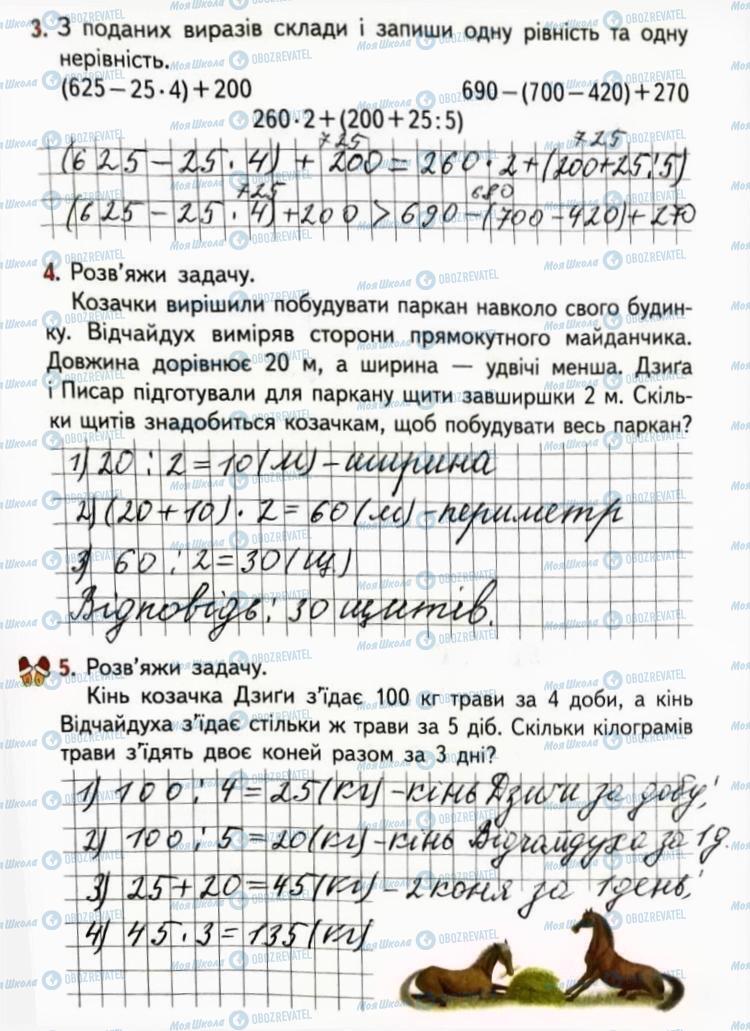 3. З поданих виразів склади і запиши одну рівність та одну
нерівність.
(625 – 25 · 4) + 200 690 – (700 – 420) + 270
260 · 2 + (200 + 25 : 5)
725 725
(625 – 25 · 4) + 200 = 260 · 2 + (200 + 25 : 5)
725 680
(625 – 25 · 4) + 200 > 690 – (700 – 420) + 270
4. Розв'яжи задачу.
Козачки вирішили побудувати паркан навколо свого будин-
ку. Відчайдух виміряв сторони прямокутного майданчика.
Довжина дорівнює 20 м, а ширина — удвічі менша. Дзиґа
і Писар підготували для паркану щити завширшки 2 м. Скіль-
ки щитів знадобиться козачкам, щоб побудувати весь паркан?
1) 20 : 2 = 10 (м) – ширина
2) (20 + 10) · 2 = 60 (м) – периметр
3) 60 : 2 = 30 (щ)
Відповідь: 30 щитів.
5. Розв'яжи задачу.
Кінь козачка Дзиґи з'їдає 100 кг трави за 4 доби, а кінь
Відчайдуха з'їдає стільки ж трави за 5 діб. Скільки кілограмів
трави з'їдять двоє коней разом за 3 дні?
1) 100 : 4 = 25 (кг) – кінь Дзиґи за добу;
2) 100 : 5 = 20 (кг) – кінь Відчайдуха за 1 д.
3) 25 + 20 = 45 (кг) – 2 коня за 1 день;
4) 45 · 3 = 135 (кг)
МояШкола OBOZREVATEL